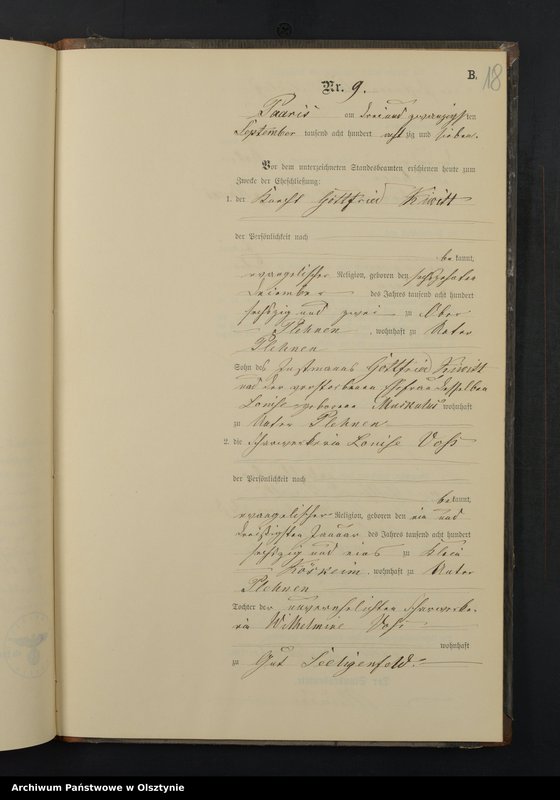 B.
18
Nr. 9.
Paaris am drei und zwanzigsten
September tausend acht hundert achtzig und sieben.
Vor dem unterzeichneten Standesbeamten erschienen heute zum
Zwecke der Eheschließung:
1. der Knecht Gottfried Kiwitt
der Persönlichkeit nach
bekannt,
evangelischer Religion, geboren den sechszehnten
Dezember des Jahres tausend acht hundert
sechszig und zwei zu Ober
Plehnen, wohnhaft zu Unter
Plehnen
Sohn des Instmanns Gottfried Kiwitt
und der verstorbenen Ehefrau desselben
Louise geborene wohnhaft
zu Unter Plehnen
2. die Scharwerkerin Louise Voß
der Persönlichkeit nach
bekannt,
evangelischer Religion, geboren den ein und
dreißigsten Januar des Jahres tausend acht hundert
sechszig und eins zu Klein
wohnhaft zu Unter
Plehnen
Tochter der unverehelichten Scharwerke-
rin Wilhelmine Voß
wohnhaft
zu Gut Seeligenfeld.
Archiwum Państwowe w Olsztynie